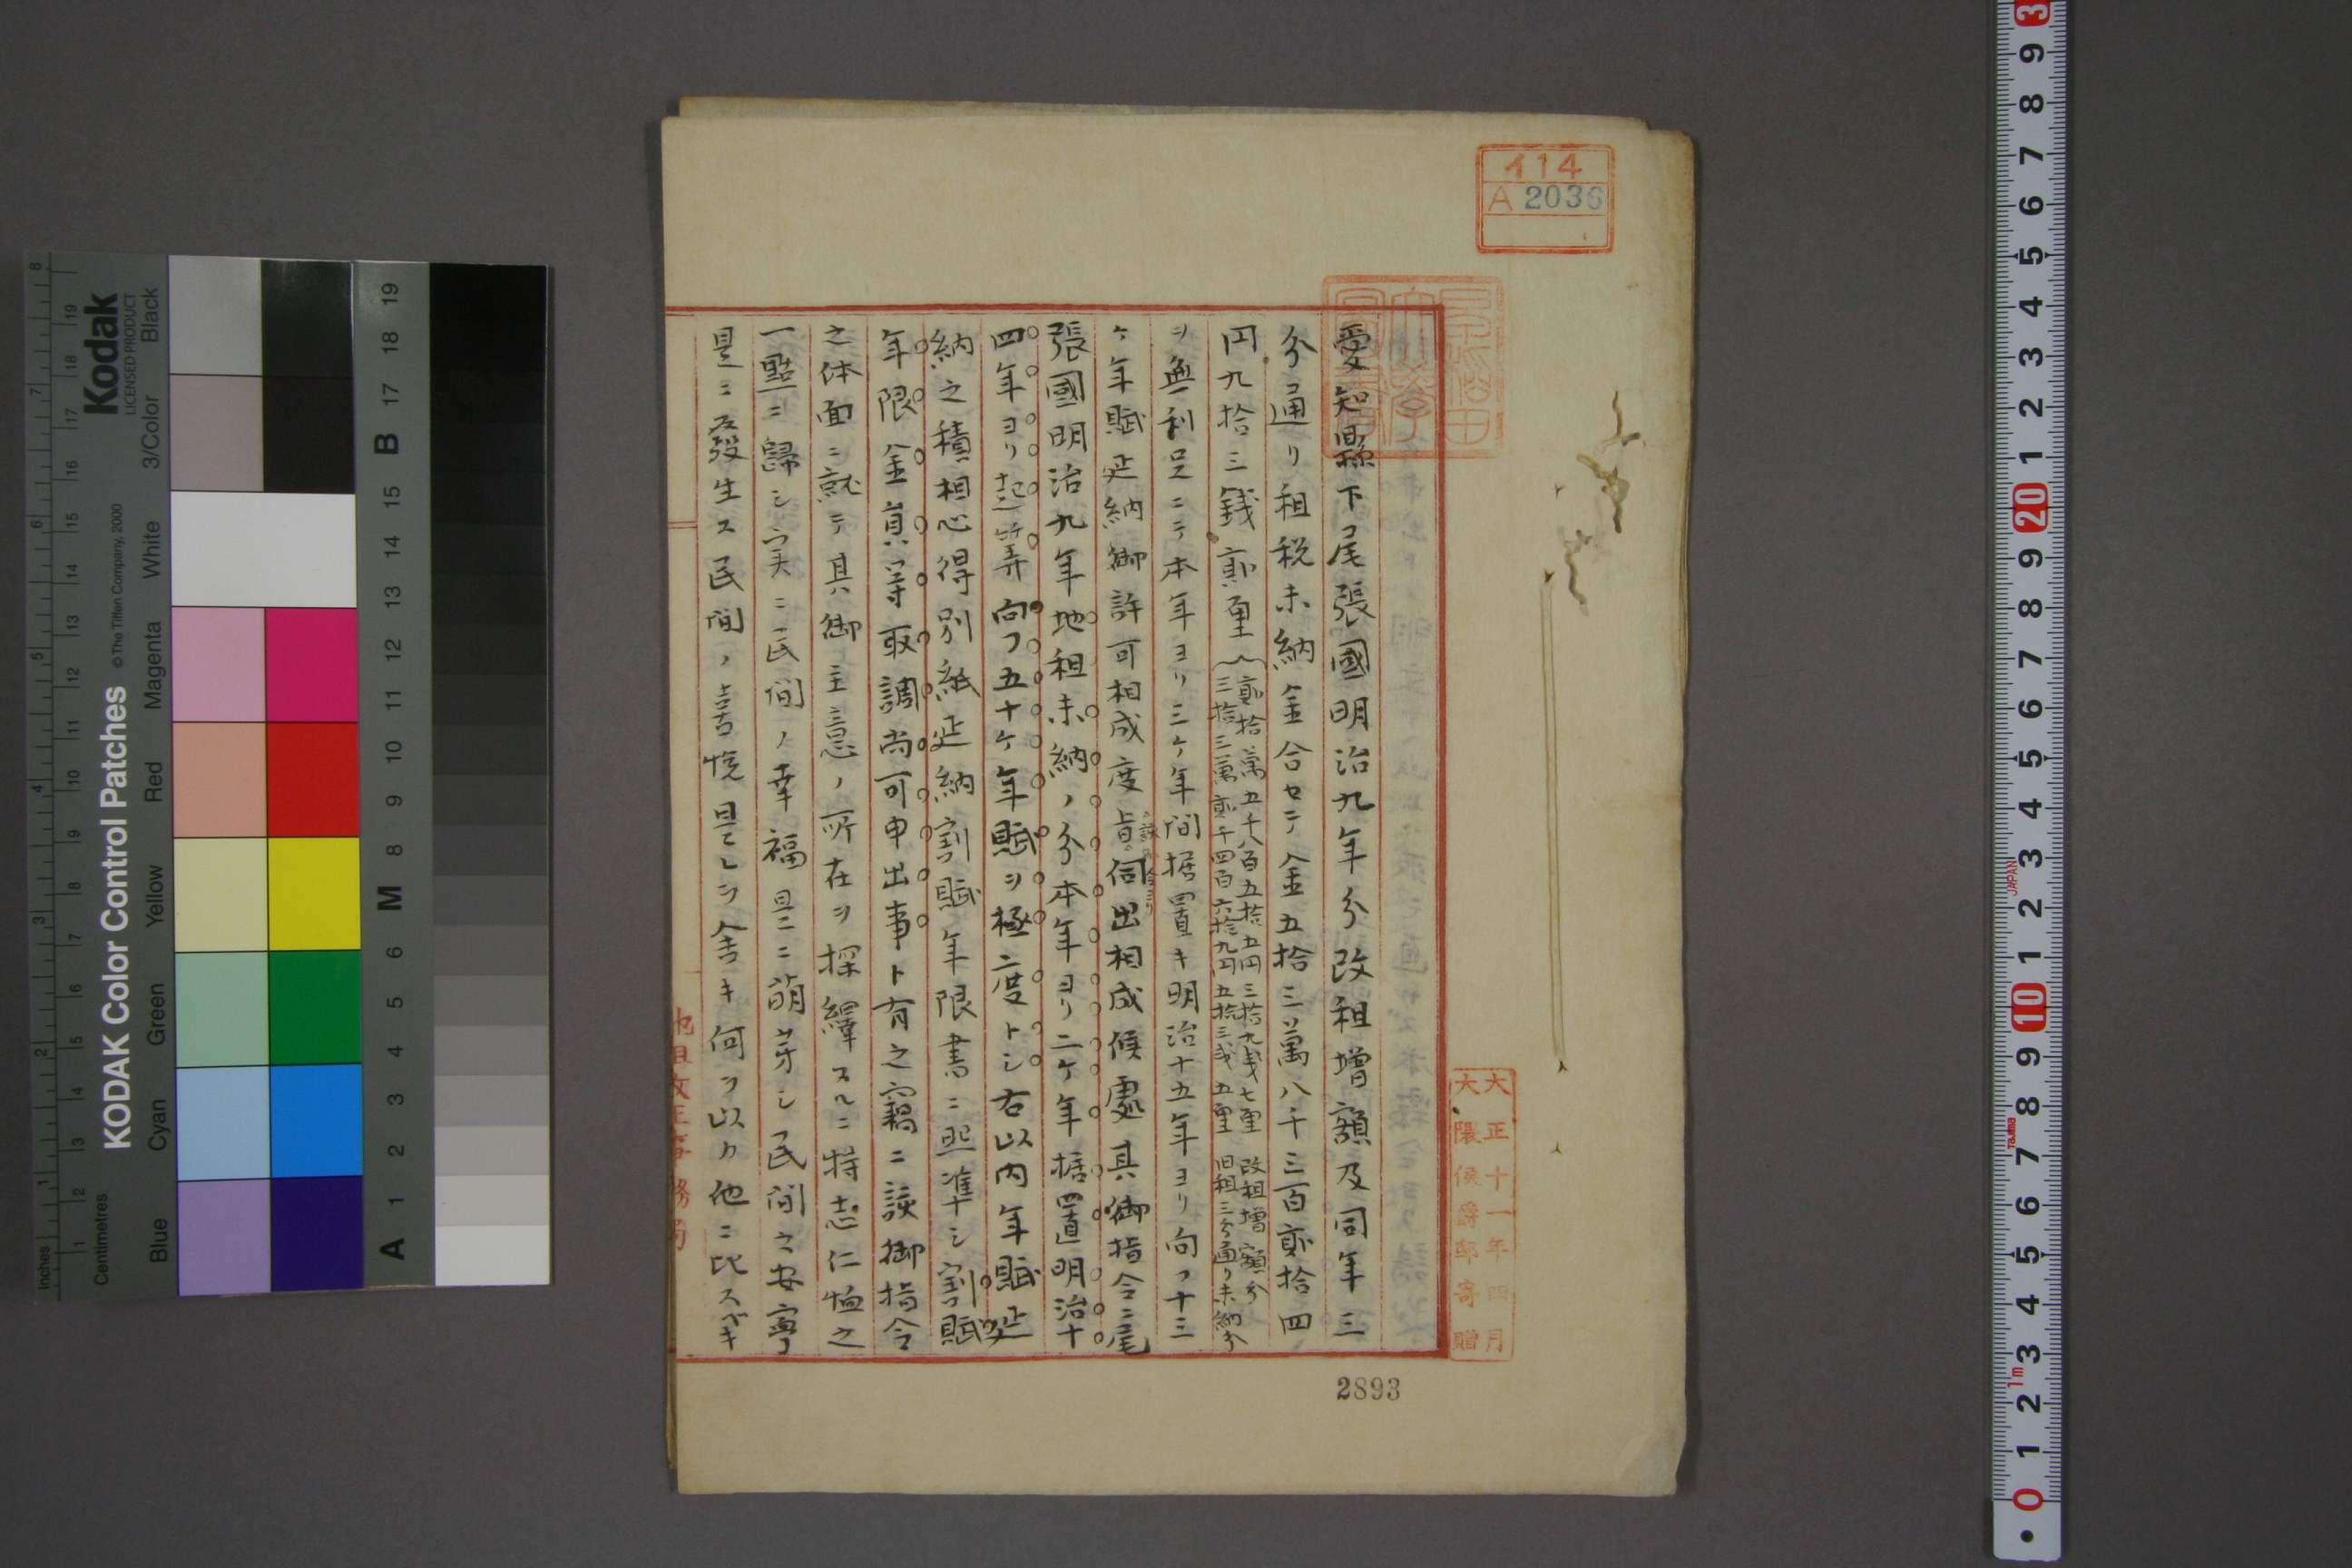 愛知縣下尾張國明治九年分改租增額及同年三
分通リ租税未納金合セテ金五拾三萬八千三百貳拾四
円九拾三銭貳厘
貳拾萬五千八百五拾五円三拾九銭七厘 改租增額分
三拾三萬貳千四百六拾九円五拾三銭五厘 旧租三分通リ未納分
ヲ無利足ニテ本年ヨリ三ヶ年間据置キ明治十五年ヨリ向フ十三
ヶ年賦延納御許可相成度旨伺出相成候處其御指令ニ尾
張國明治九年地租未納ノ分本年ヨリ二ヶ年据置明治十
四年ヨリ起算向フ五十ヶ年賦ヲ極度トシ右以内年賦延
納之積相心得別紙延納割賦年限書ニ照準シ割賦
年限金員等取調尚可申出事ト有之竊ニ該御指令
之体面ニ就テ其御主意ノ所在ヲ探繹スルニ特志仁恤之
一點ニ歸シ実ニ民間ノ幸福是ニ萌芽シ民間之安寧
是ニ發生ス民間ノ喜悦是レヲ舎キ何ヲ以カ他ニ比スベキ
イ14
A 2036
大正十一年四月
大隈侯爵邸寄贈
2893
KODAK Color Control Patches
© The Tiffen Company, 2000
Kodak
LICENSED PRODUCT
Inches
Centimetres
Blue
Cyan
Green
Yellow
Red
Magenta
White
3/Color
Black
A 1 2 3 4 5 6 M 8 9 10 11 12 13 14 15 B 17 18 19
JAPAN
Tajima
1m